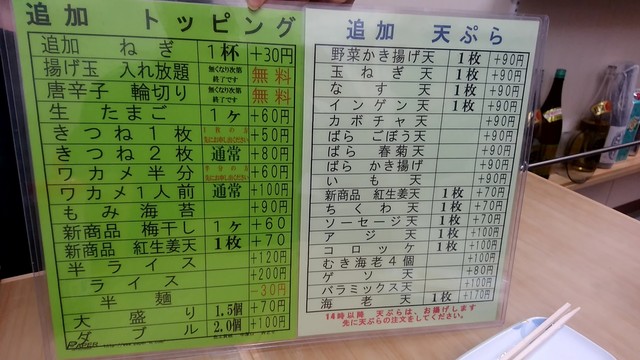 追加 トッピング
追加 ねぎ 1杯 +30円
揚げ玉 入れ放題 無くなり次第終了です 無料
唐辛子 輪切り 無くなり次第終了です 無料
生 たまご 1ヶ +60円
きつね1枚 +50円
きつね2枚 通常 +80円
ワカメ半分 +60円
ワカメ1人前 通常 +100円
もみ海苔 +90円
新商品 梅干し 1ヶ +60
新商品 紅生姜天 1枚 +70
半ライス +120円
ライス +200円
半麺 -30円
大盛り 1.5個 +70円
ダブル 2.0個 +100円
追加 天ぷら
野菜かき揚げ天 1枚 +90円
玉ねぎ天 1枚 +90円
なす天 1枚 +90円
インゲン天 1枚 +90円
カボチャ天 +90円
ばら ごぼう天 +90円
ばら 春菊天 +90円
ばら かき揚げ +90円
いも天 +90円
新商品 紅生姜天 1枚 +70円
ちくわ天 1枚 +70円
ソーセージ天 1枚 +70円
アジ天 1枚 +100円
コロッケ 1枚 +100円
むき海老4個 +100円
ゲソ天 +80円
バラミックス天 +100円
海老天 1枚 +170円
14時以降 天ぷらは、お揚げします
先に天ぷらの注文をしてください。